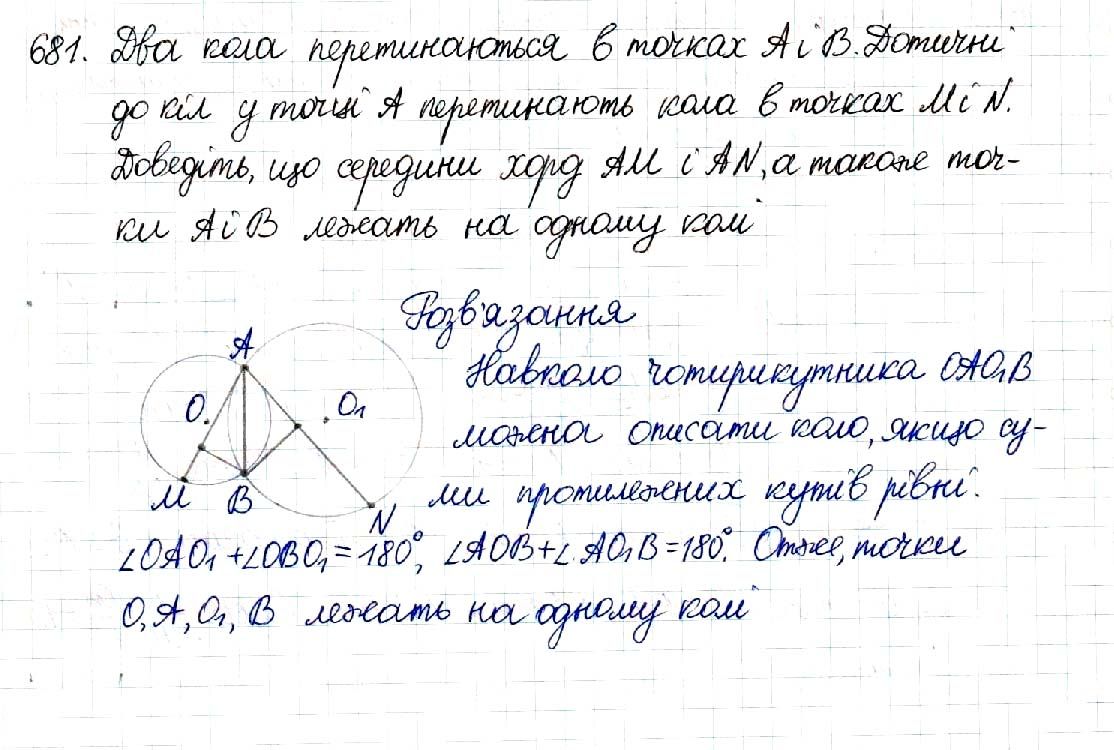 681. Два кола перетинаються в точках А і В. Дотичні
до кіл у точці А перетинають кола в точках М і N.
Доведіть, що середини хорд АМ і АN, а також точ-
ки А і В лежать на одному колі
Розв'язання
А
Навколо чотирикутника ОАО₁В
О
О₁
можна описати коло, якщо су-
М
В
N
ми протилежних кутів рівні.
∠ОАО₁ + ∠ОВО₁ = 180°, ∠АОВ + ∠АО₁В = 180°. Отже, точки
О, А, О₁, В лежать на одному колі